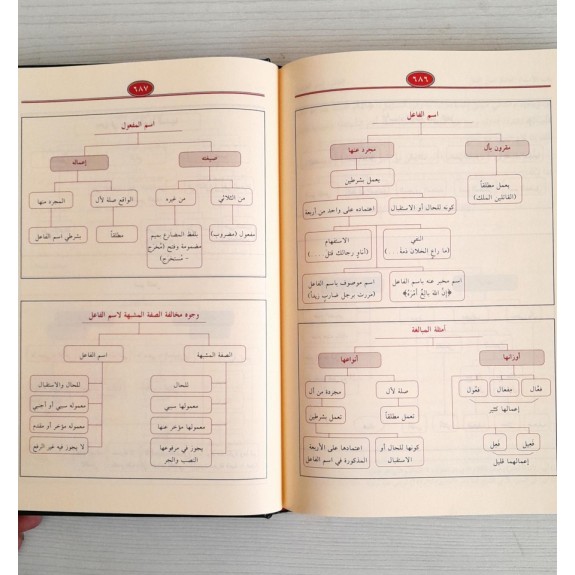 ٦٨٦
اسم الفاعل
مقرون بأل
مجرد عنها
يعمل مطلقاً
(القاتلين الملك)
يعمل بشرطين
كونه للحال أو الاستقبال
اعتماده على واحد من أربعة
النفي
(ما راعٍ الخلان ذمة ...)
الاستفهام
(أناوٍ رجالك قتل ...)
اسم مخبر عنه باسم الفاعل
﴿إنّ الله بالغٌ أمرَهُ﴾
اسم موصوف باسم الفاعل
(مررت برجل ضاربٍ زيداً)
أمثلة المبالغة
أوزانها
أنواعها
فعّال
مِفعال
فعُول
إعمالها كثير
فعيل
فَعِل
إعمالهما قليل
صلة لأل
تعمل مطلقاً
مجردة من أل
تعمل بشرطين
كونها للحال أو
الاستقبال
اعتمادها على الأربعة
المذكورة في اسم الفاعل
٦٨٧
اسم المفعول
صيغته
إعماله
من الثلاثي
مفعول (مضروب)
من غيره
بلفظ المضارع بميم
مضمومة وفتح (مُخرَج
– مُستخرَج)
الواقع صلة لأل
مطلقاً
المجرد منها
بشرطي اسم الفاعل
وجوه مخالفة الصفة المشبهة لاسم الفاعل
الصفة المشبهة
اسم الفاعل
للحال
معمولها سببي
معمولها مؤخر عنها
يجوز في مرفوعها
النصب والجر
للحال والاستقبال
معموله سببي أو أجنبي
معموله مؤخر أو مقدم
لا يجوز فيه غير الرفع